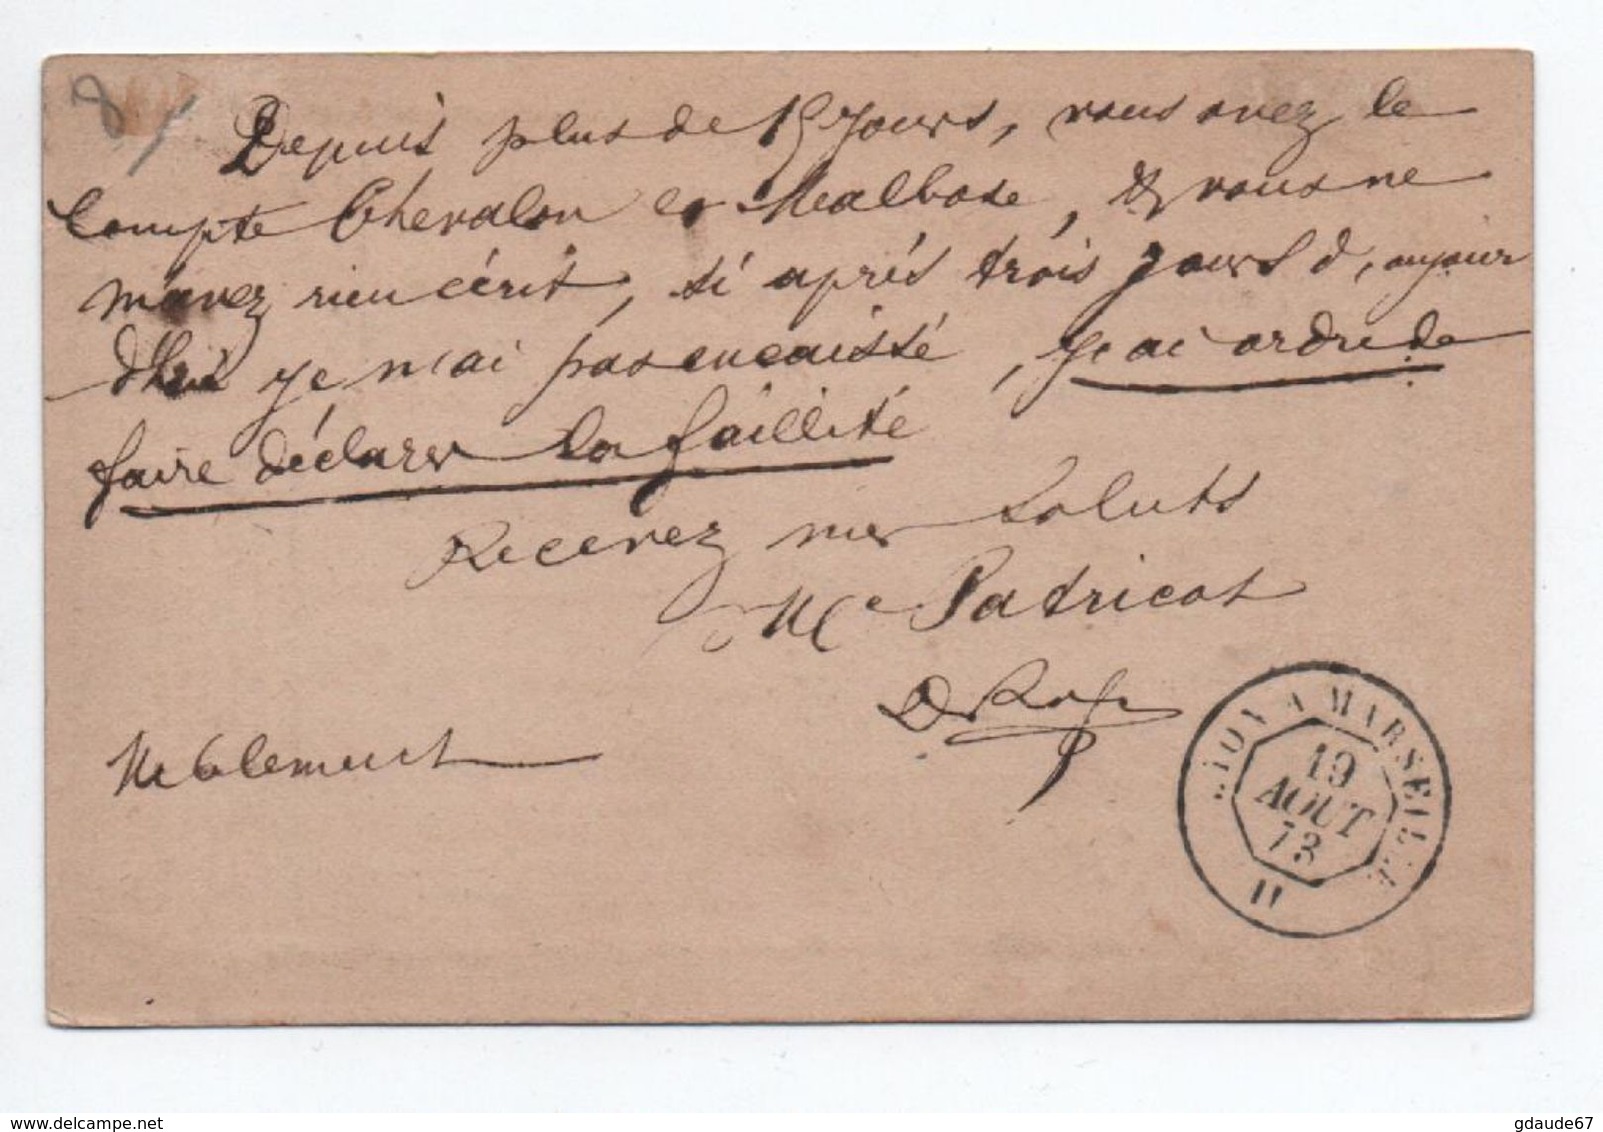 8/
Depuis plus de 15 Jours, vous avez le
Compte Chevalon et Malbose, & vous ne
m'avez rien écrit, si après trois Jours d'aujour
d'hui je n'ai pas encaissé, j'ai ordre de
faire déclarer la faillite
Recevez mes Saluts
Me Patricot
Me Clement
LYON A MARSEILLE
19
AOUT
73
delcampe.net
gdaude67